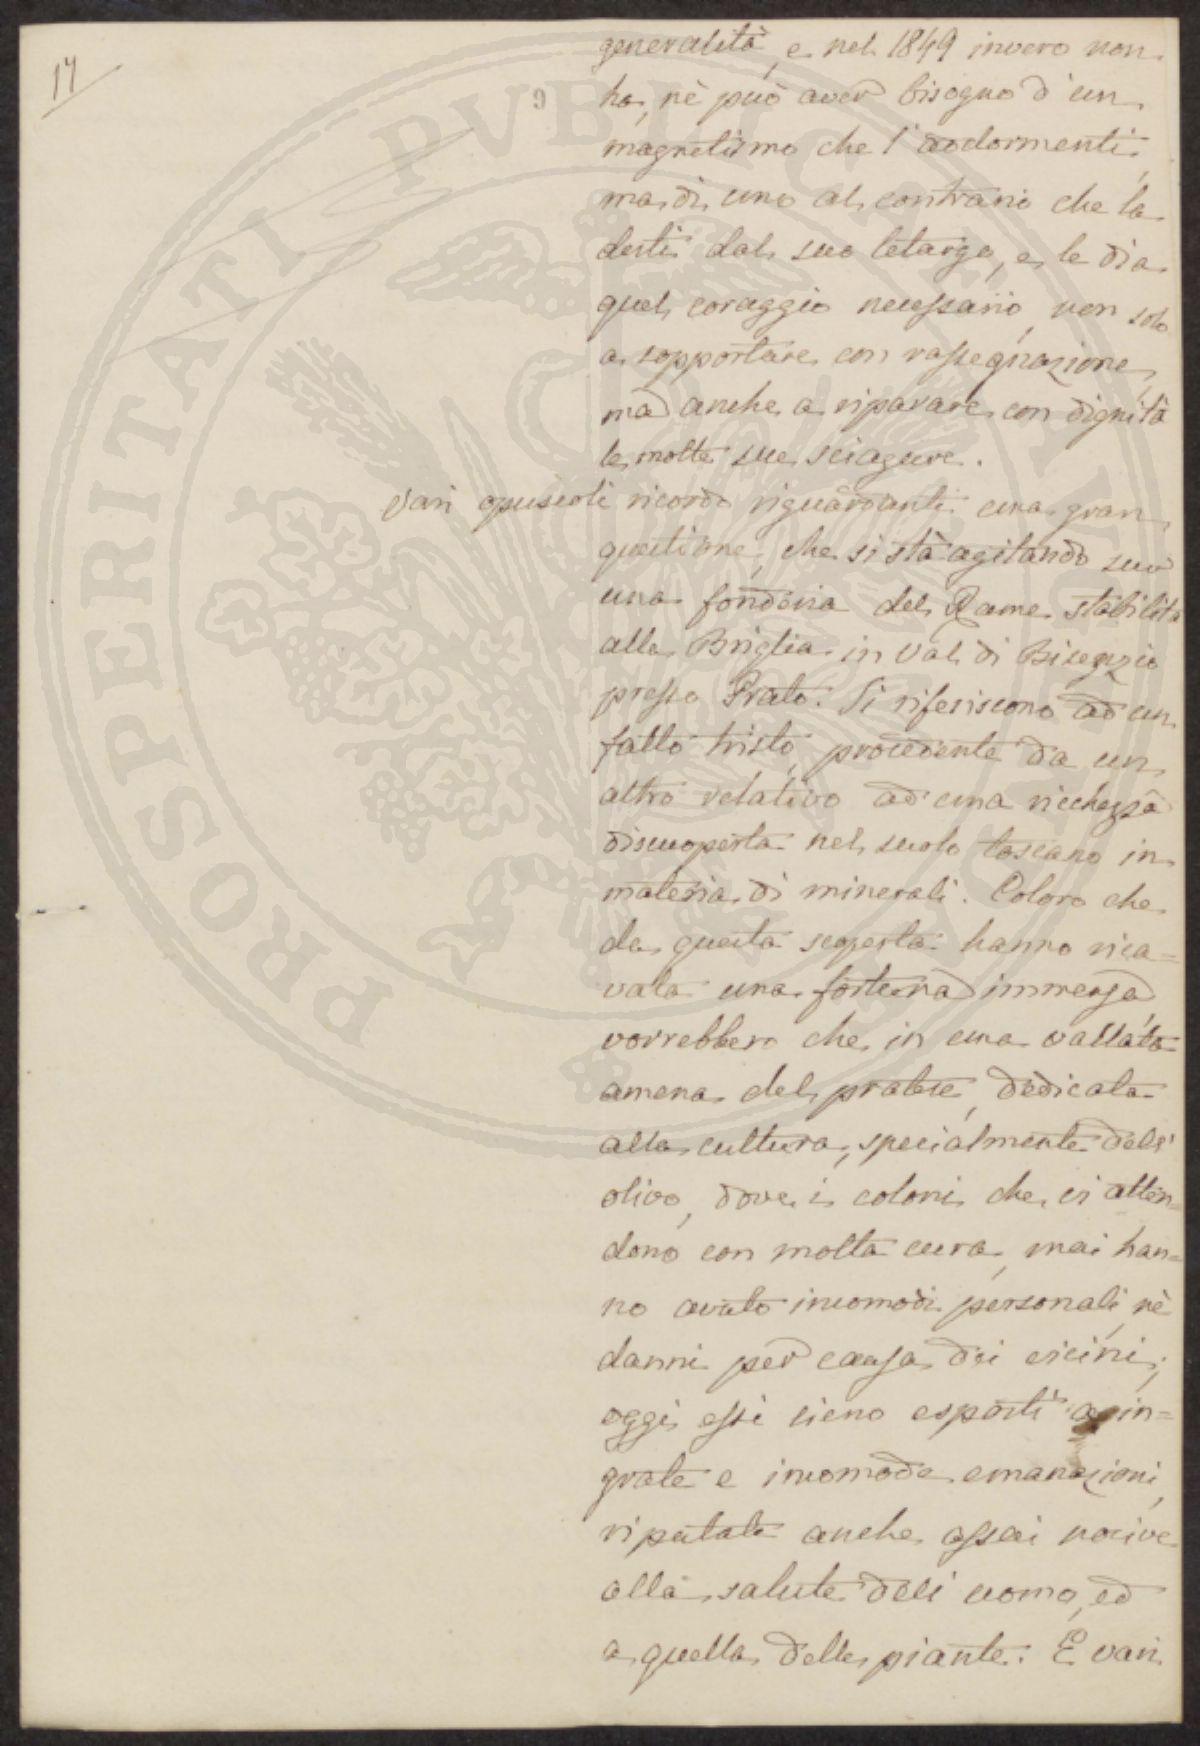 17
generalità, e nel 1849 invero non
ha, nè può aver bisogno d'un
magnetismo che l'addormenti,
ma di uno al contrario che la
desti dal suo letargo, e le dia
quel coraggio necessario, non solo
a sopportare con rassegnazione,
ma anche a riparare con dignità
le molte sue sciagure.
Vari opuscoli ricordo riguardanti una gran
questione, che si stà agitando sur
una fonderia del Rame stabilita
alla Briglia in Val di Bisenzio
presso Prato. Si riferiscono ad un
fatto tristo, procedente da un
altro relativo ad una ricchezza
discuoperta nel suolo toscano in
materia di minerali. Coloro che
da questa scoperta hanno rica=
vata una fortuna immensa,
vorrebbero che in una vallata
amena del pratese, dedicata
alla cultura, specialmente dell'
olivo, dove i coloni che vi atten=
dono con molta cura, mai han=
no avuto incomodi personali, nè
danni per causa dei vicini,
oggi essi sieno esposti a in=
grate e incomode emanazioni,
riputate anche assai nocive
alla salute dell'uomo, ed
a quella delle piante. E vari
PROSPERITATI PVBLICAE AVGENDAE